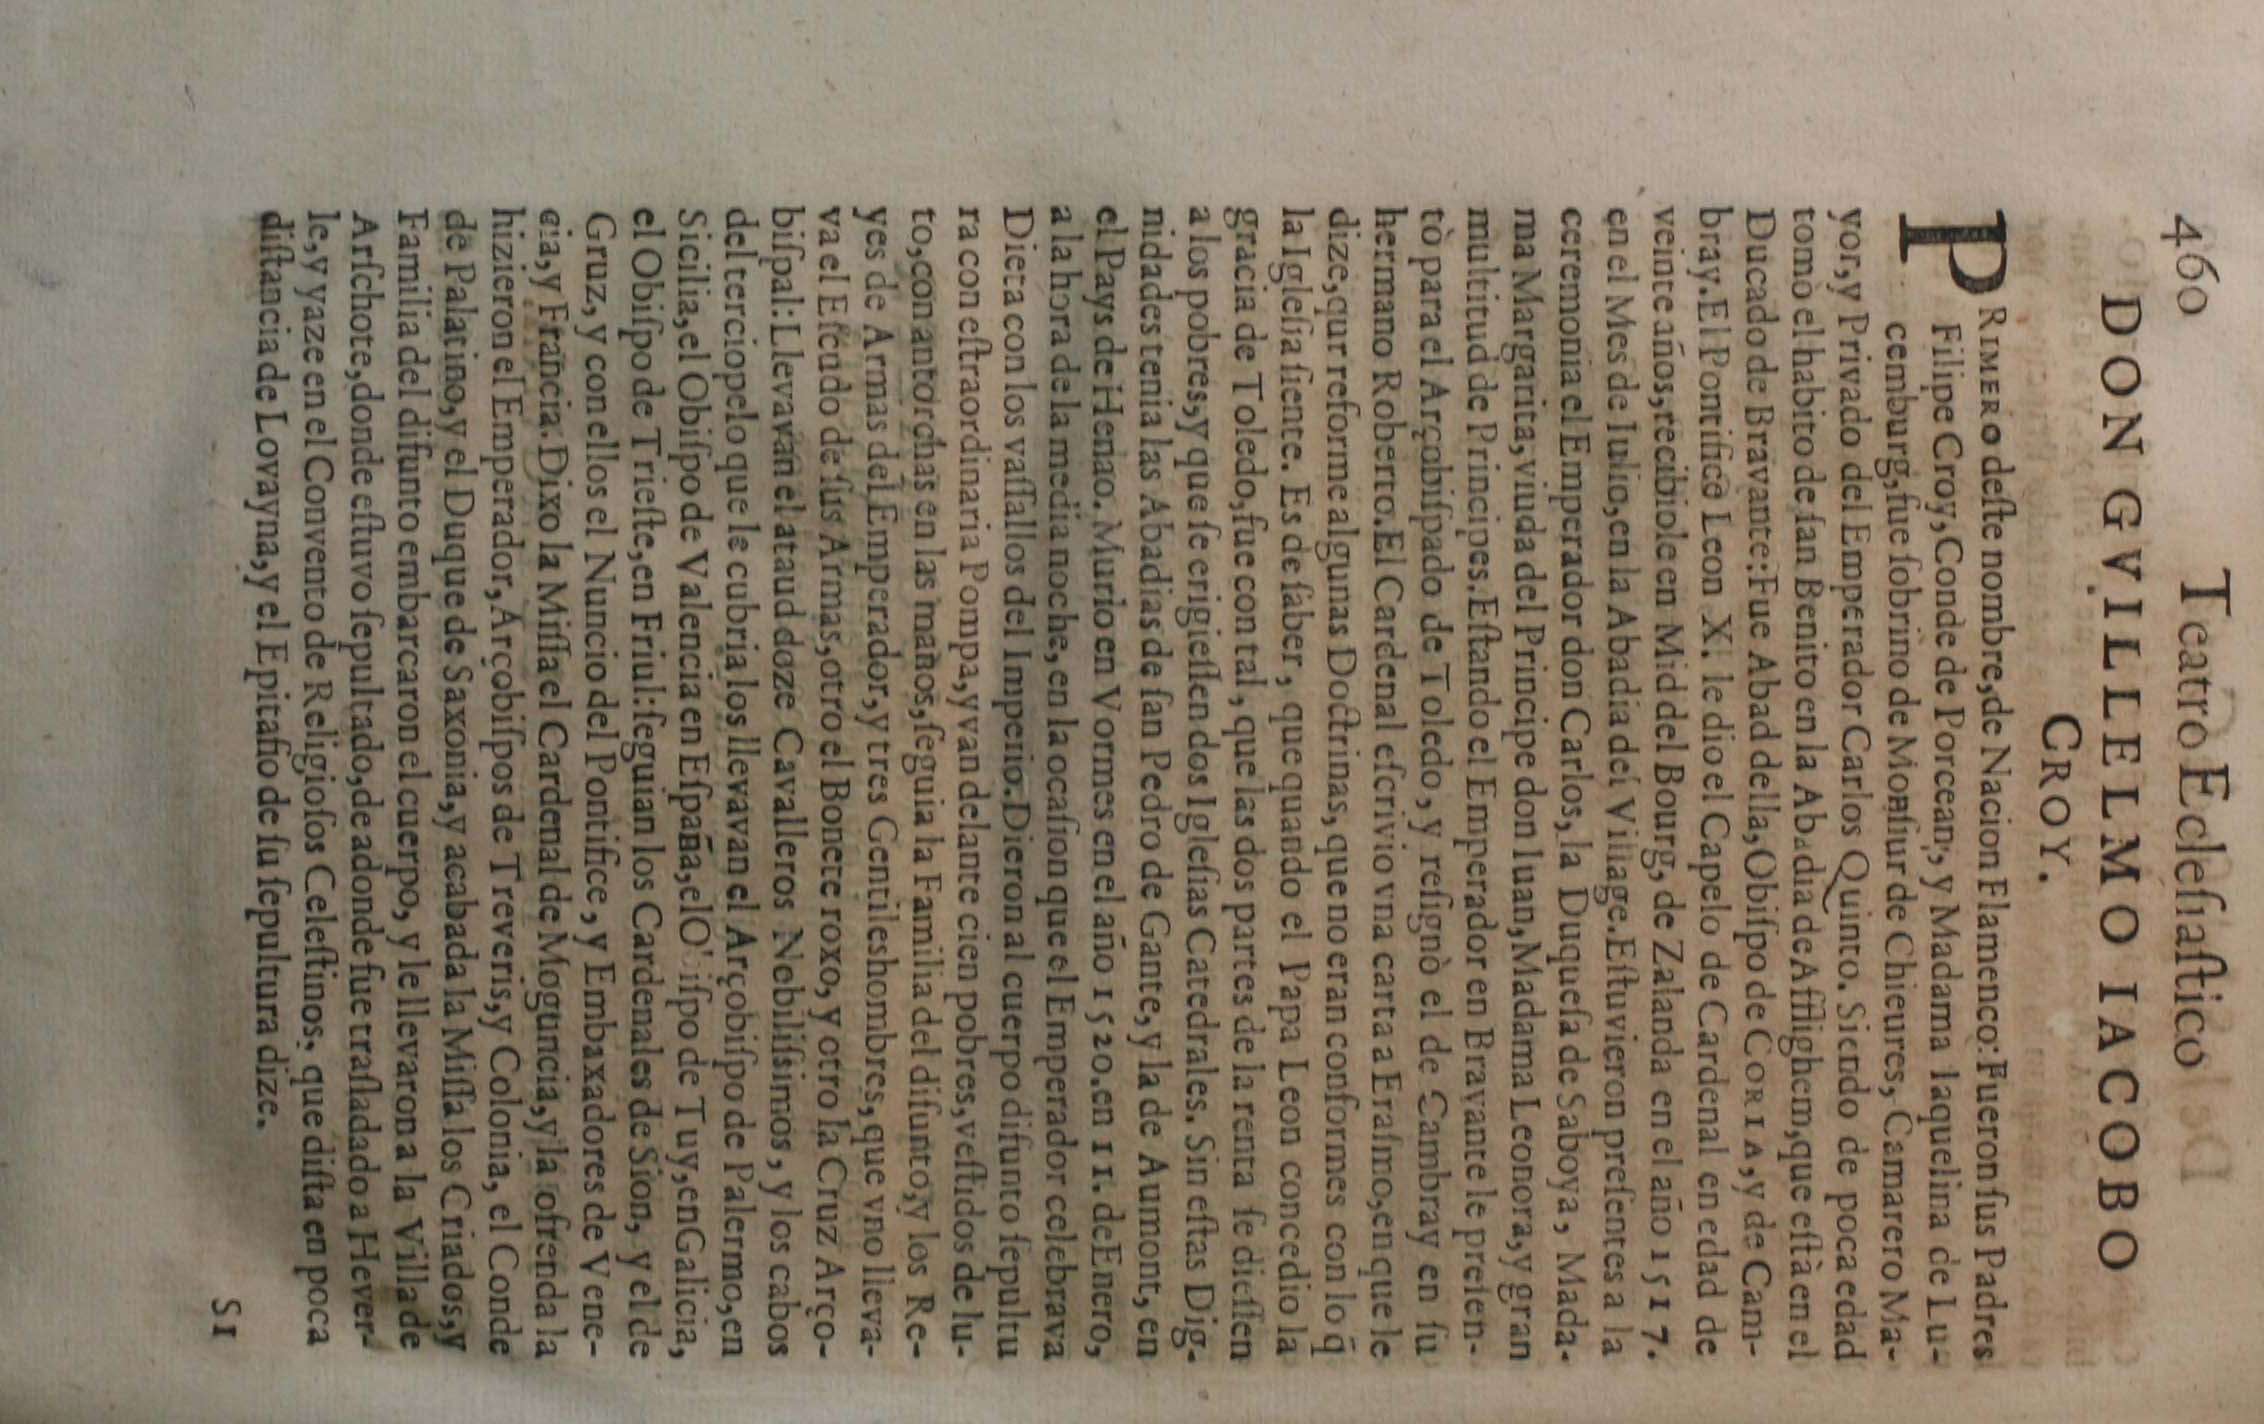 460 Teatro Eclesiaſtico
DON GVILLELMO IACOBO
CROY.
PRIMERO deſte nombre, de Nacion Flamenco: Fueron ſus Padres
Filipe Croy, Conde de Porcean, y Madama Iaquelina de Lu-
cemburg, fue ſobrino de Monſiur de Chieures, Camarero Ma-
yor, y Privado del Emperador Carlos Quinto. Siendo de poca edad
tomò el habito de ſan Benito en la Abadia de Afflighem, que eſtà en el
Ducado de Bravante: Fue Abad della, Obiſpo de CORIA, y de Cam-
bray. El Pontifice Leon X. le dio el Capelo de Cardenal en edad de
veinte años, recibiole en Mid del Bourg, de Zalanda en el año 1517.
en el Mes de Iulio, en la Abadia del Village. Eſtuvieron preſentes a la
ceremonia el Emperador don Carlos, la Duqueſa de Saboya, Mada-
ma Margarita, viuda del Principe don Iuan, Madama Leonora, y gran
multitud de Principes. Eſtando el Emperador en Bravante le preſen-
tò para el Arçobiſpado de Toledo, y reſignò el de Cambray en ſu
hermano Roberro. El Cardenal eſcrivio vna carta a Eraſmo, en que le
dize, qur reforme algunas Doctrinas, que no eran conformes con lo q̃
la Igleſia ſiente. Es de ſaber, que quando el Papa Leon concedio la
gracia de Toledo, fue con tal, que las dos partes de la renta ſe dieſſen
a los pobres, y que ſe erigieſſen dos Igleſias Catedrales. Sin eſtas Dig-
nidades tenia las Abadias de ſan Pedro de Gante, y la de Aumont, en
el Pays de Henao. Murio en Vormes en el año 1520. en 11. de Enero,
a la hora de la media noche, en la ocaſion que el Emperador celebrava
Dieta con los vaſſallos del Imperio. Dieron al cuerpo difunto ſepultu
ra con eſtraordinaria Pompa, y van delante cien pobres, veſtidos de lu-
to, con antorchas en las manos, ſeguia la Familia del difunto, y los Re-
yes de Armas del Emperador, y tres Gentileshombres, que vno lleva-
va el Eſcudo de ſus Armas, otro el Bonete roxo, y otro la Cruz Arço-
biſpal: Llevavan el ataud doze Cavalleros Nobiliſsimos, y los cabos
del terciopelo que le cubria los llevavan el Arçobiſpo de Palermo, en
Sicilia, el Obiſpo de Valencia en Eſpaña, el Obiſpo de Tuy, en Galicia,
el Obiſpo de Trieſte, en Friul: ſeguian los Cardenales de Sion, y el de
Gruz, y con ellos el Nuncio del Pontifice, y Embaxadores de Vene-
cia, y Francia. Dixo la Miſſa el Cardenal de Moguncia, y la ofrenda la
hizieron el Emperador, Arçobiſpos de Treveris, y Colonia, el Conde
de Palatino, y el Duque de Saxonia, y acabada la Miſſa los Criados, y
Familia del difunto embarcaron el cuerpo, y le llevaron a la Villa de
Arſchote, donde eſtuvo ſepultado, de adonde fue traſladado a Hever-
le, y yaze en el Convento de Religioſos Celeſtinos, que diſta en poca
diſtancia de Lovayna, y el Epitafio de ſu ſepultura dize.
SI